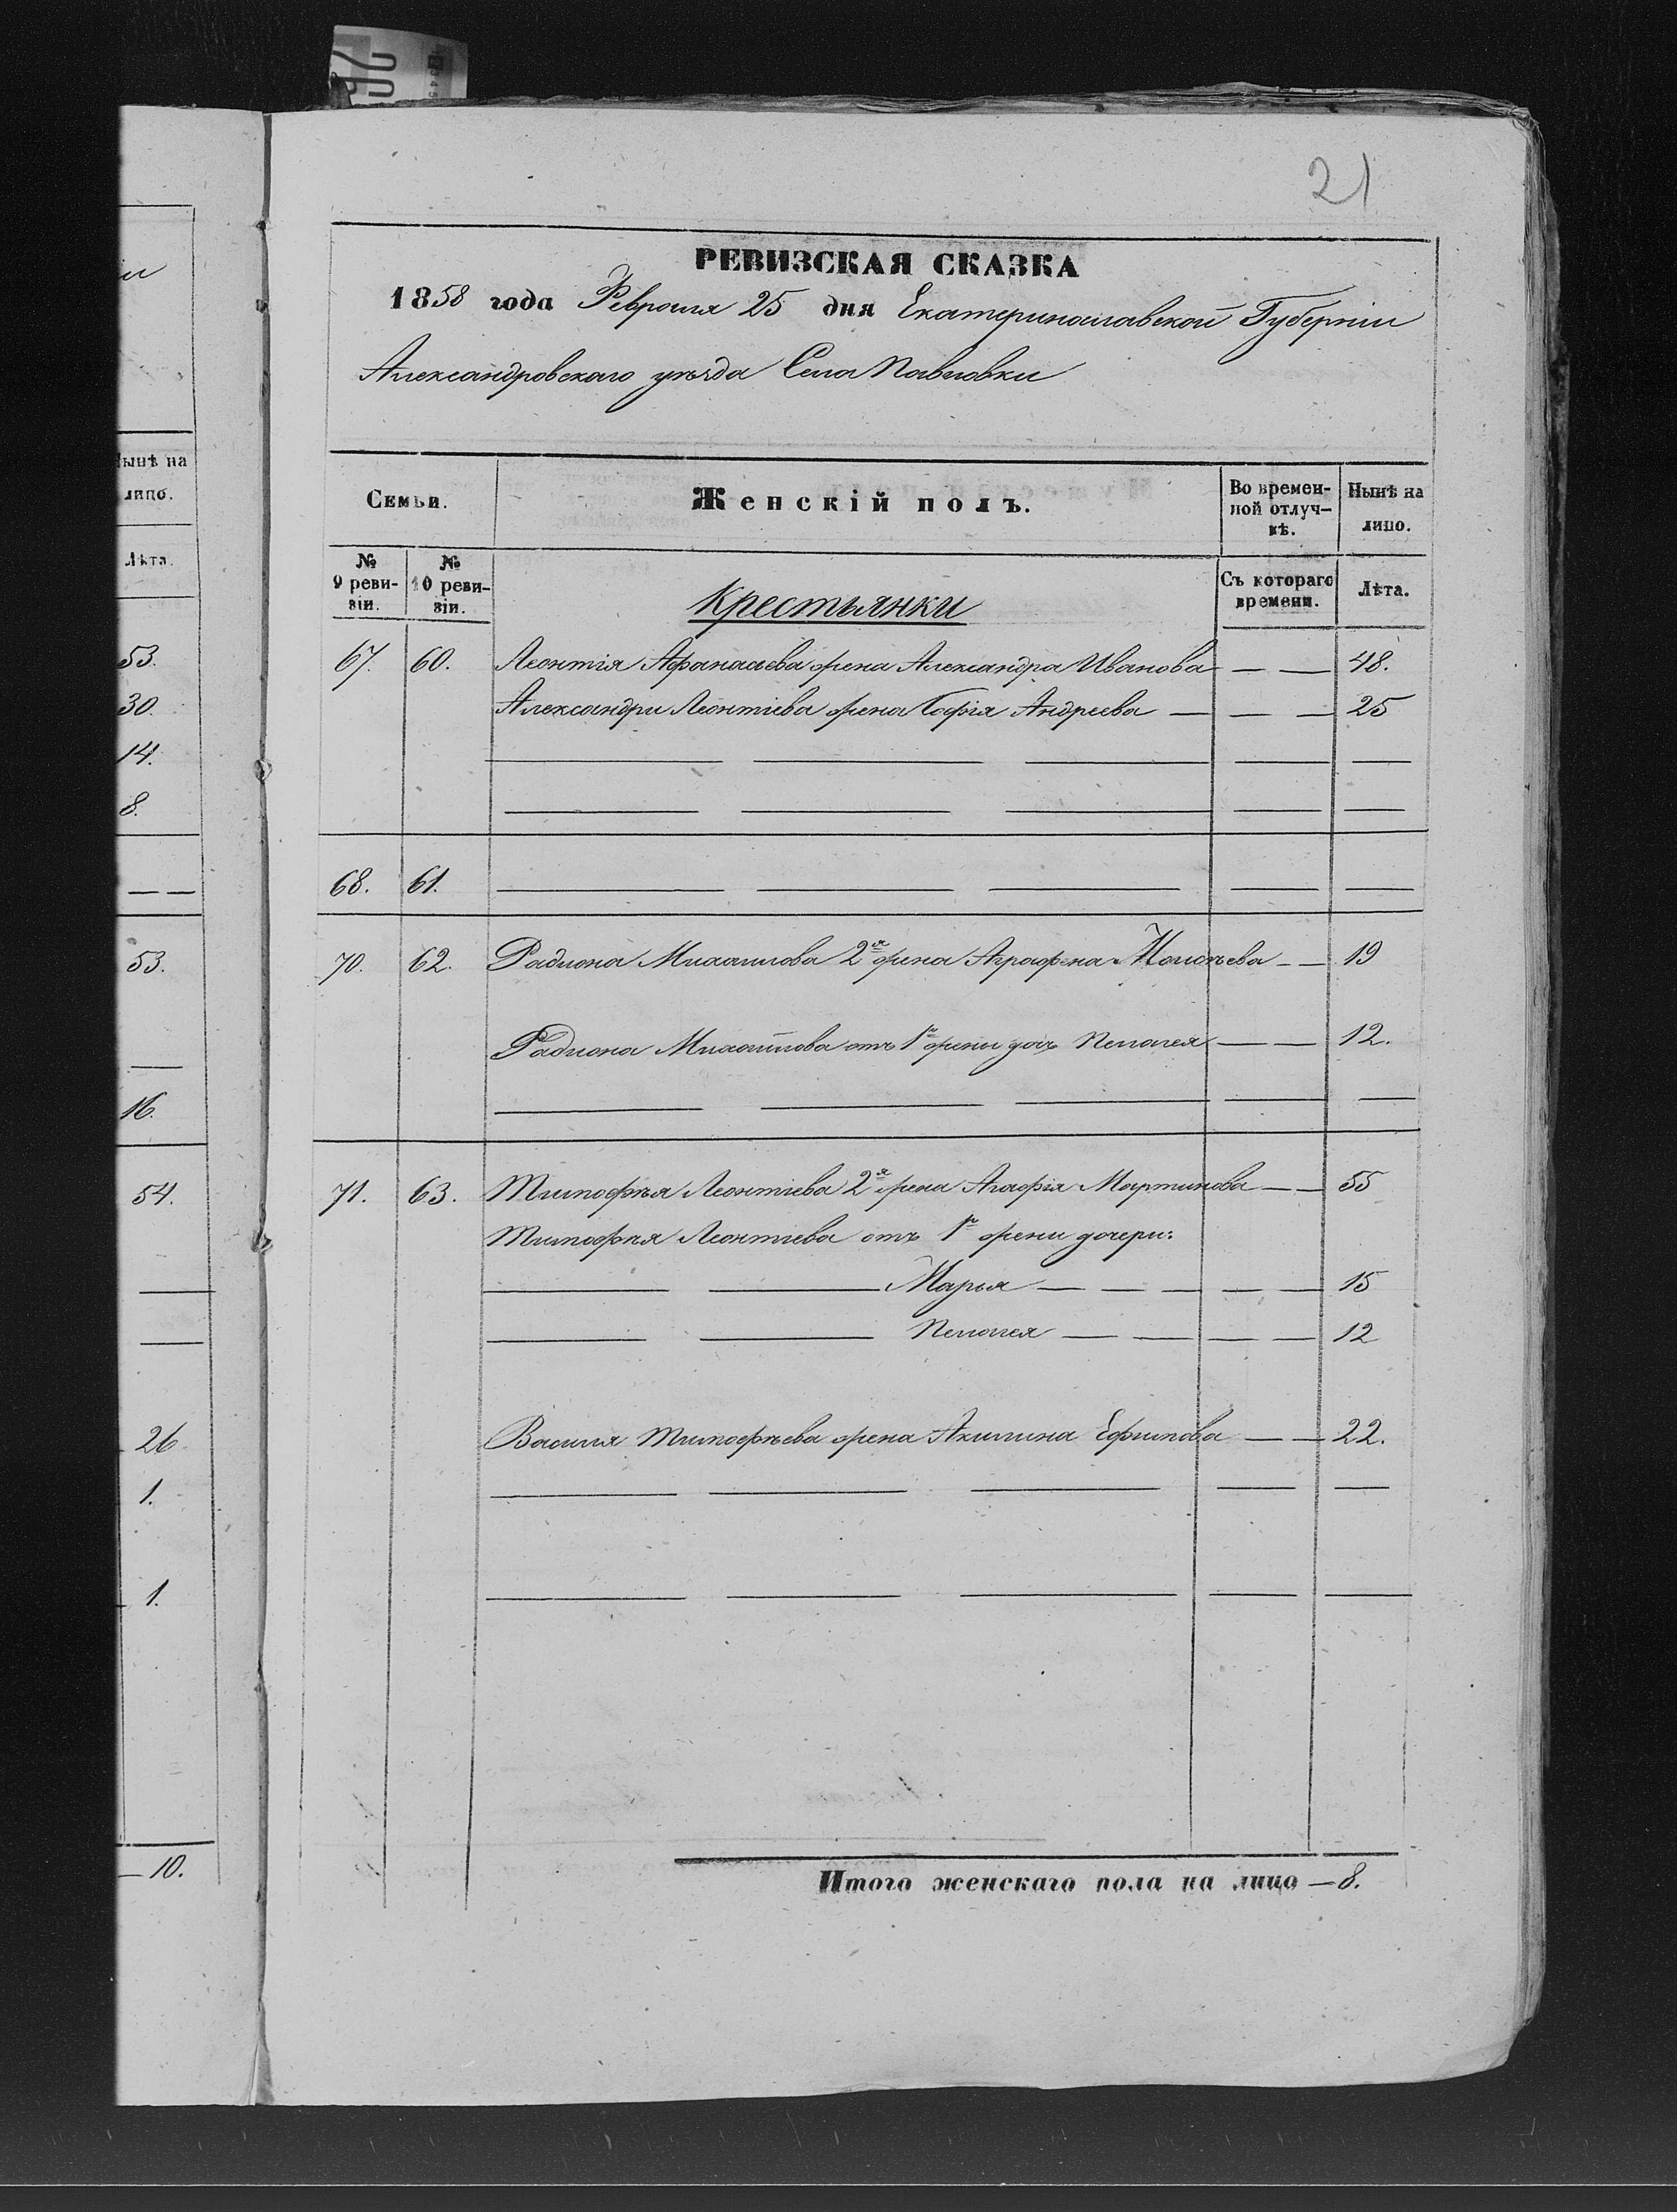 21
РЕВИЗСКАЯ СКАЗКА
1858 года Февраля 25 дня Екатеринославской Губерніи
Александровскаго уѣзда Села Павловки
Семьи. Женскій полъ. Во времен-ной отлуч-кѣ. Нынѣ на лицо.
№ 9 реви-зіи. № 10 реви-зіи. Съ котораго времени. Лѣта.
Крестьянки
67. 60. Леонтія Афанасьева жена Александра Иванова — — 48.
Александри Леонтіева жена Софія Андреева — — — 25
68. 61.
70. 62. Радиона Михаилова 2я жена Аграфена Моисѣева — — 19
Радиона Михайлова отъ 1й жени дочь Пелагея — — 12.
71. 63. Тимофѣя Леонтіева 2я жена Агафія Мартинова — — 55
Тимофѣя Леонтіева отъ 1й жени дочери:
Марья — — — — — 15
Пелагея — — — — 12
Василя Тимофѣева жена Акилина Ефимова — — 22.
Итого женскаго пола на лицо — 8.
Нынѣ на
лицо.
Лѣта.
53.
30.
14.
8.
53.
16.
54.
26
1.
1.
— 10.